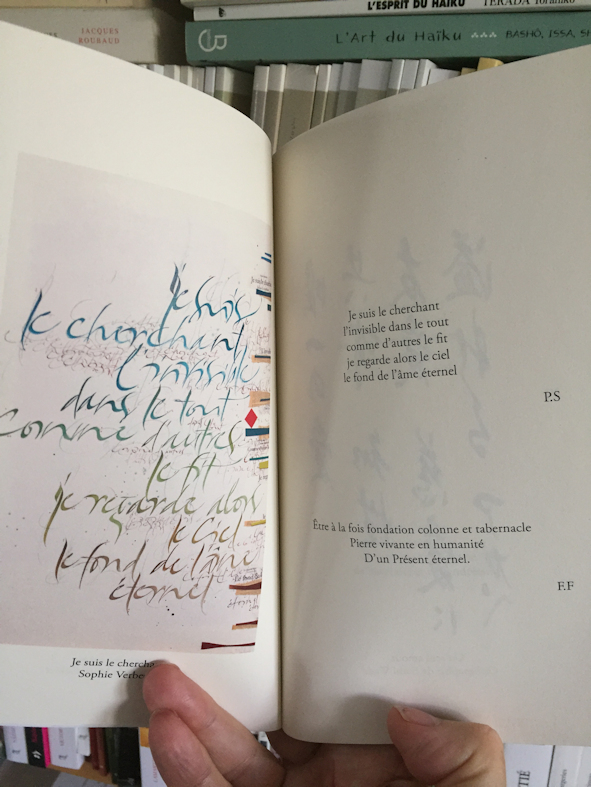 JACQUES
ROUBAUD
L'ESPRIT DU HAÏKU
TERADA Torahiko
L'Art du Haïku
BASHÔ, ISSA,
je suis
le cherchant
l'invisible
dans le tout
comme d'autres
le fit
je regarde alors
le ciel
le fond de l'âme
éternel
Je suis le
Sophie
Je suis le cherchant
l'invisible dans le tout
comme d'autres le fit
je regarde alors le ciel
le fond de l'âme éternel
P.S
Être à la fois fondation colonne et tabernacle
Pierre vivante en humanité
D'un Présent éternel.
F.F